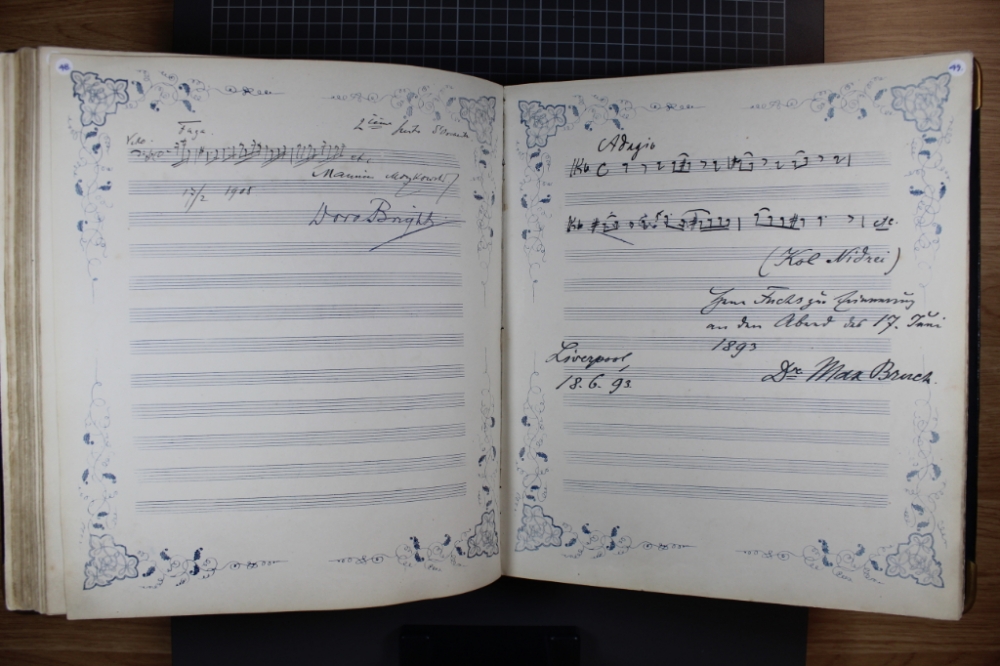 48.
Fuga.
2ième Suite
Vivo.
etc.
Maurice Moszkowski
17/2 1908
Dora Bright
49.
Adagio
etc.
(Kol Nidrei)
Herrn Fuchs zur Erinnerung
an den Abend des 17. Juni
1893
Liverpool,
18.6.93
Dr Max Bruch.